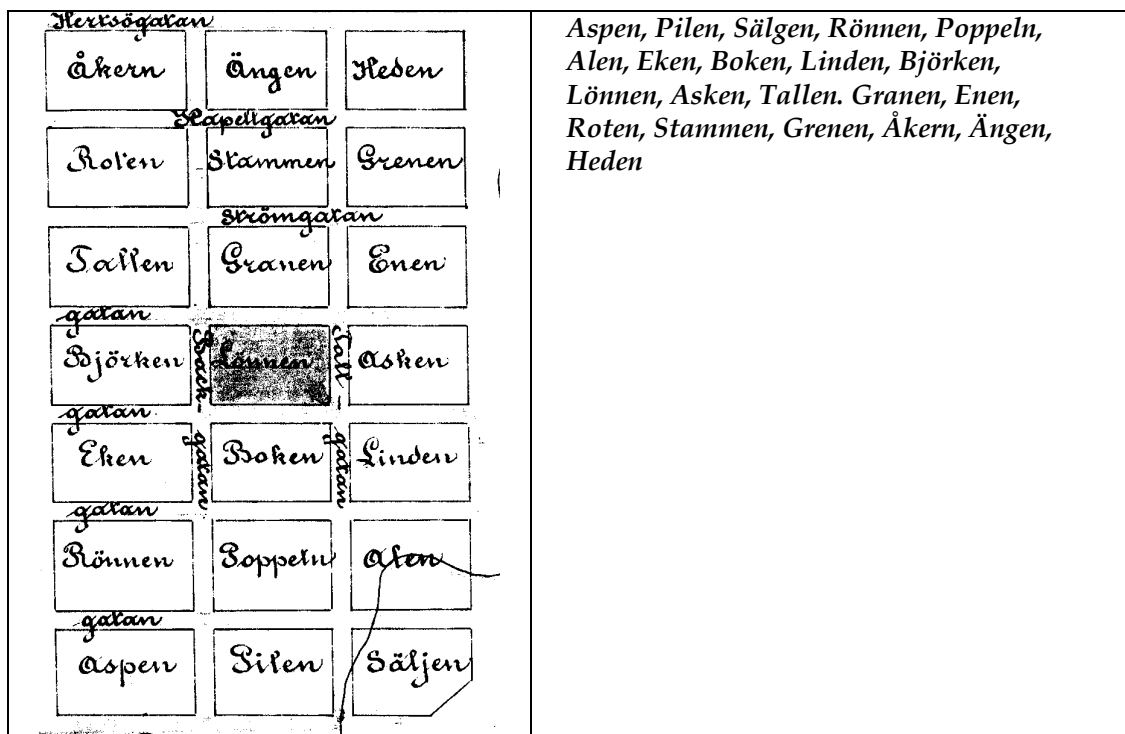 Hertsögatan
Åkern Ängen Heden
Kapellgatan
Roten Stammen Grenen
Strömgatan
Tallen Granen Enen
gatan
Björken Lönnen Asken
Back-gatan
Tall-gatan
gatan
Eken Boken Linden
gatan
Rönnen Poppeln Alen
gatan
Aspen Pilen Säljen
Aspen, Pilen, Sälgen, Rönnen, Poppeln,
Alen, Eken, Boken, Linden, Björken,
Lönnen, Asken, Tallen. Granen, Enen,
Roten, Stammen, Grenen, Åkern, Ängen,
Heden